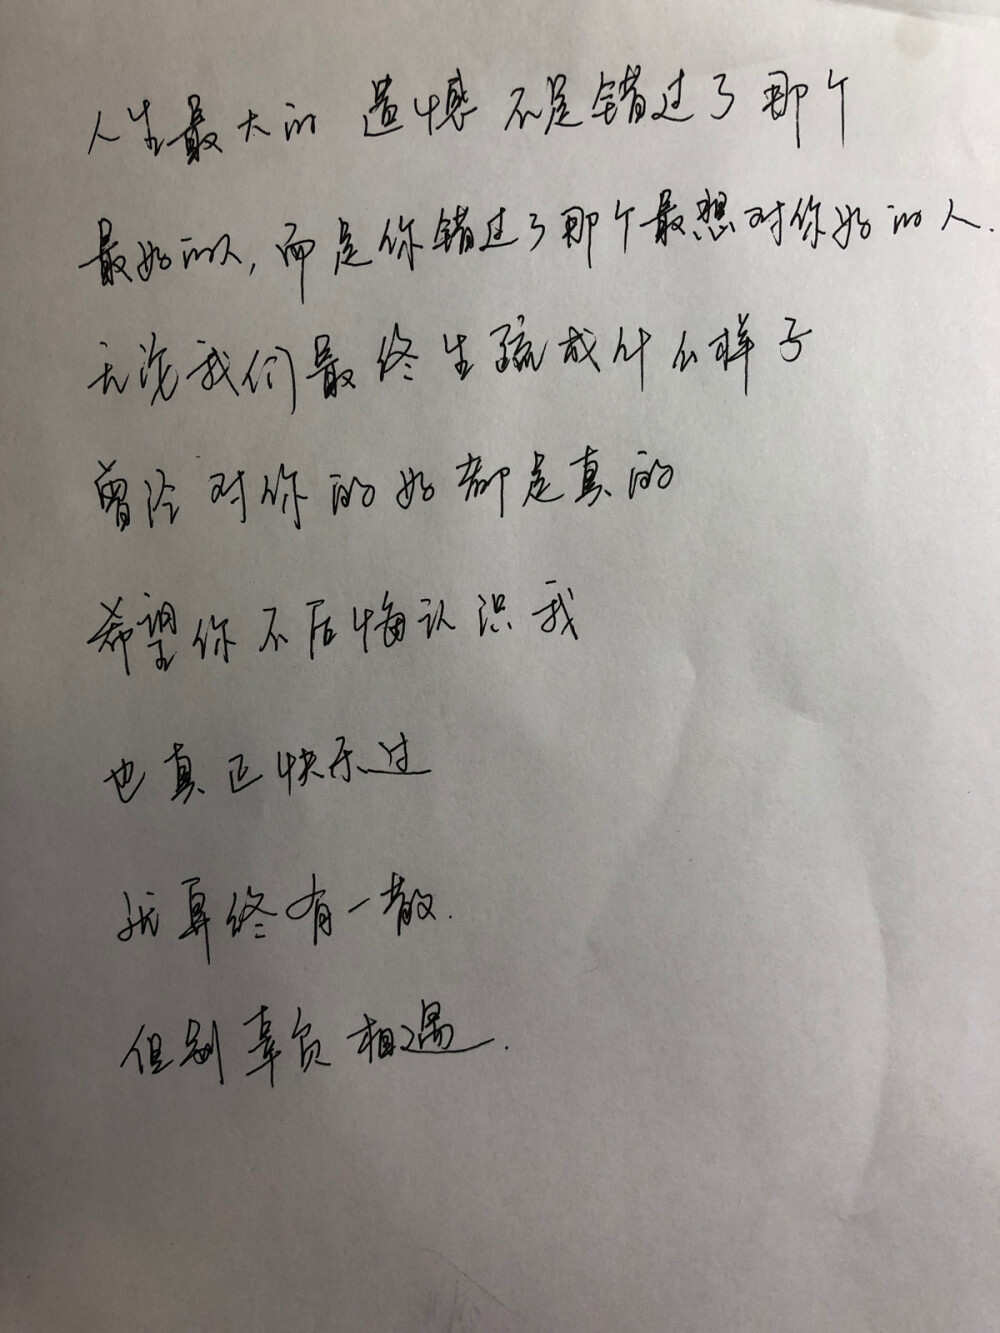 人生最大的遗憾不是错过了那个
最好的人,而是你错过了那个最想对你好的人.
无论我们最终生疏成什么样子
曾经对你的好都是真的
希望你不后悔认识我
也真正快乐过
就算终有一散.
但别辜负相遇.